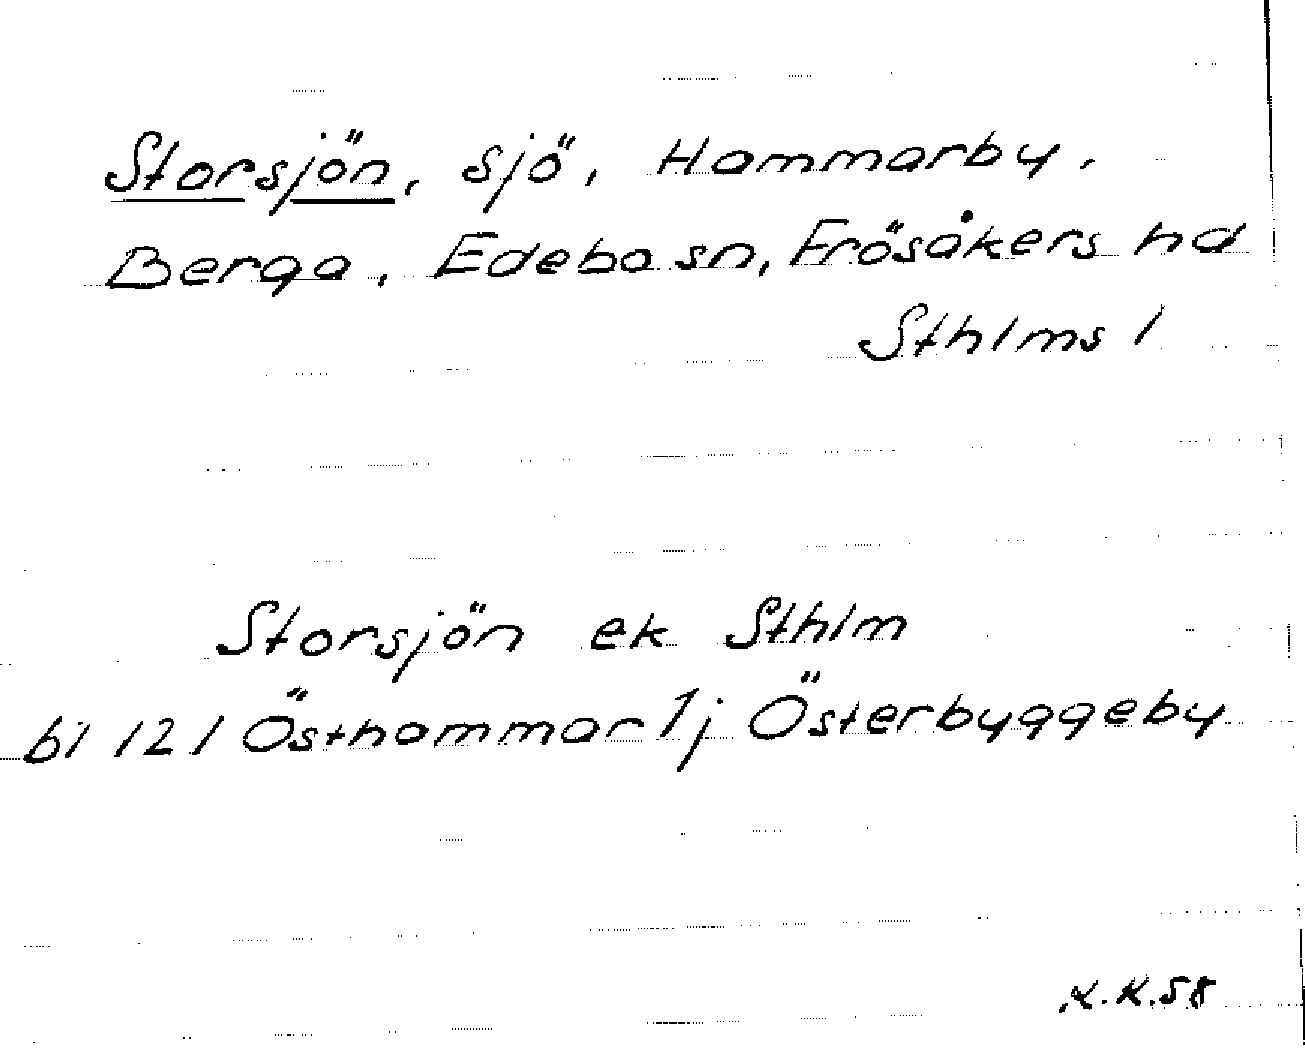 Storsjön, sjö, Hammarby,
Berga, Edebo sn, Frösåkers hd
Sthlms l
Storsjön ek Sthlm
bl 121 Östhammar 1j Österbyggeby
K.58